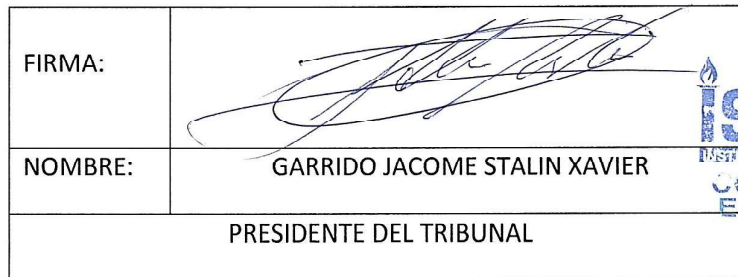 FIRMA:
NOMBRE: GARRIDO JACOME STALIN XAVIER
PRESIDENTE DEL TRIBUNAL